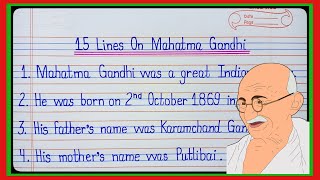 Date
Page
15 Lines On Mahatma Gandhi
1. Mahatma Gandhi was a great
2. He was born on 2nd October 1869 in
3. His father's name was Karamchand
4. His mother's name was Putlibai.